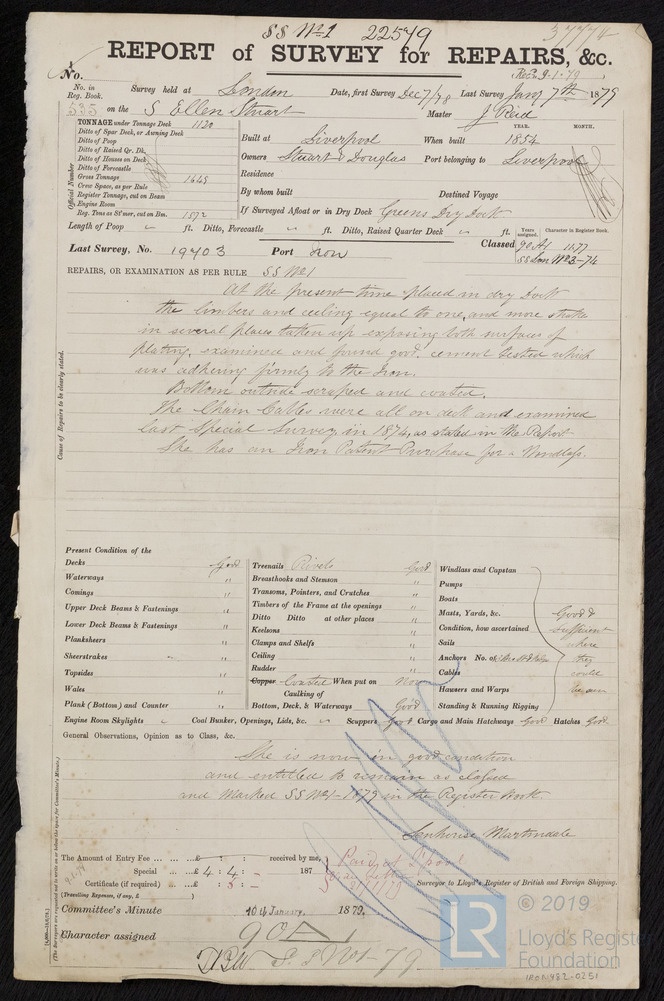 SS No.1 22579
37774
REPORT of SURVEY for REPAIRS, &c.
No.
Rec'd 9-1-79
No. in Reg. Book. Survey held at London Date, first Survey Dec 7/78 Last Survey Jany 7th 1879
535 on the S Ellen Stuart Master J Reid
TONNAGE under Tonnage Deck 1120
Ditto of Spar Deck, or Awning Deck
Ditto of Poop
Ditto of Raised Qr. Dk.
Ditto of Houses on Deck
Ditto of Forecastle
Gross Tonnage 1645
Crew Space, as per Rule
Register Tonnage, cut on Beam
Engine Room
Reg. Tons as St'mer, cut on Bm. 1572
Official Number
YEAR. MONTH.
Built at Liverpool When built 1854
Owners Stuart & Douglas Port belonging to Liverpool
Residence
By whom built Destined Voyage
If Surveyed Afloat or in Dry Dock Greens Dry Dock
Length of Poop " ft. Ditto, Forecastle " ft. Ditto, Raised Quarter Deck " ft.
Years assigned. Character in Register Book.
Last Survey, No. 19403 Port Iron Classed 90 A1 11.77
SS Lon No.3-74
REPAIRS, OR EXAMINATION AS PER RULE SS No1
At the present time placed in dry dock
the limbers and ceiling equal to one, and more strake
in several places taken up exposing both surfaces of
plating, examined and found good. cement tested which
was adhering firmly to the Iron.
Bottom outside scraped and coated.
The Chain Cables were all on deck and examined
last Special Survey in 1874, as stated in the Report
She has an Iron Patent Purchase for a Windlass.
Cause of Repairs to be clearly stated.
Present Condition of the
Decks Good
Waterways "
Comings "
Upper Deck Beams & Fastenings "
Lower Deck Beams & Fastenings "
Planksheers "
Sheerstrakes "
Topsides "
Wales "
Plank (Bottom) and Counter "
Treenails Rivets Good
Breasthooks and Stemson "
Transoms, Pointers, and Crutches "
Timbers of the Frame at the openings "
Ditto Ditto at other places "
Keelsons "
Clamps and Shelfs "
Ceiling "
Rudder "
Copper Coated When put on Now
Caulking of
Bottom, Deck, & Waterways Good
Windlass and Capstan
Pumps
Boats
Masts, Yards, &c.
Condition, how ascertained
Sails
Anchors No. of
Cables
Hausers and Warps
Standing & Running Rigging
Good &
sufficient
where
they
could
be seen
Engine Room Skylights " Coal Bunker, Openings, Lids, &c. " Scuppers Good Cargo and Main Hatchways Good Hatches Good
General Observations, Opinion as to Class, &c.
She is now in good condition
and entitled to remain as classed
and Marked SS No1-1879 in the Register Book
Senhouse Martindale
The Amount of Entry Fee ... ... ... £ : : received by me,
Special ... ... £ 4 : 4 : - 187
Certificate (if required) ... £ : 5 : -
(Travelling Expenses, if any, £ )
Paid at L'pool
Surveyor to Lloyd's Register of British and Foreign Shipping.
Committee's Minute 10th January, 1879.
Character assigned 90 A 1
S S No1-79
© 2019
LR
Lloyd's Register
Foundation
IRON482-0251